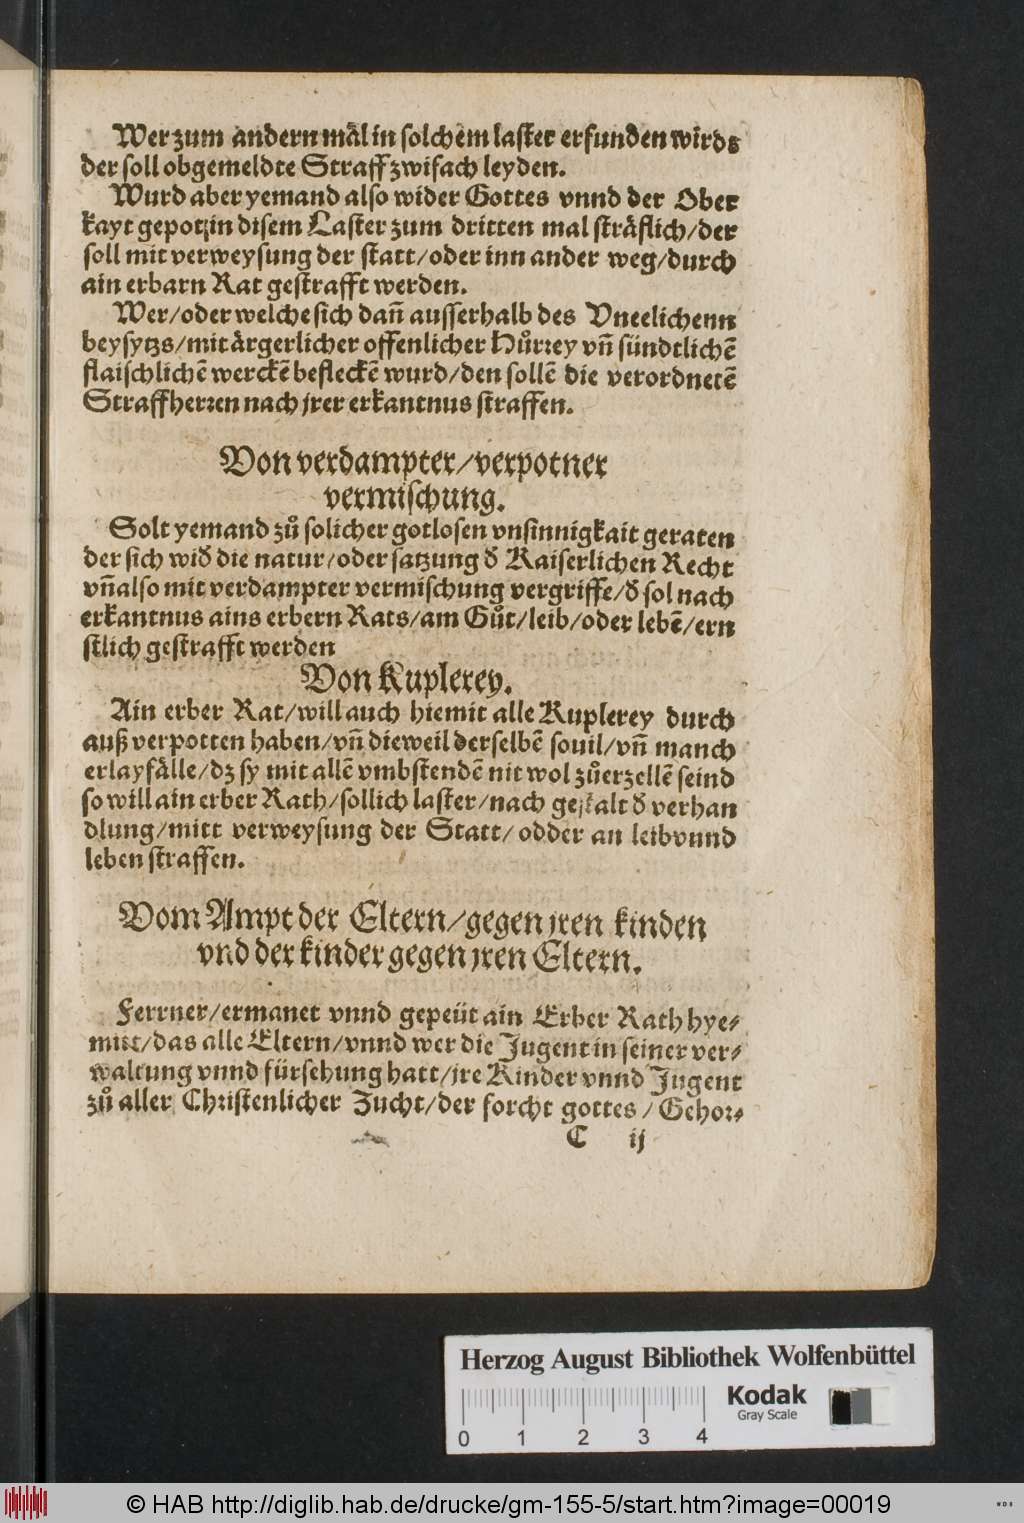 Wer zum andern mål in solchem laster erfunden wirdt
der soll obgemeldte Straff zwifach leyden.
Wurd aber yemand also wider Gottes vnnd der Ober
kayt gepotz in disem Laster zum dritten mal sträflich/der
soll mit verweysung der statt/oder inn ander weg/durch
ain erbarn Rat gestrafft werden.
Wer/oder welche sich dañ ausserhalb des Vneelichenn
beysytzs/mit årgerlicher offenlicher Hůrrey vñ sündtlichẽ
flaischlichẽ werckẽ befleckẽ wurd/den sollẽ die verordnetẽ
Straffherren nach jrer erkantnus straffen.
Von verdampter/verpotner
vermischung.
Solt yemand zů solicher gotlosen vnsinnigkait geraten
der sich wið die natur/oder satzung ð Kaiserlichen Recht
vñ also mit verdampter vermischung vergriffe/ð sol nach
erkantnus ains erbern Rats/am Gůt/leib/oder lebẽ/ern
stlich gestrafft werden
Von Kuplerey.
Ain erber Rat/will auch hiemit alle Kuplerey durch
auß verpotten haben/vñ dieweil derselbẽ souil/vñ manch
erlay fålle/dz sy mit allẽ vmbstendẽ nit wol zůerzellẽ seind
so will ain erber Rath/sollich laster/nach gestalt ð verhan
dlung/mitt verweysung der Statt/odder an leib vnnd
leben straffen.
Vom Ampt der Eltern/gegen jren kinden
vnd der kinder gegen jren Eltern.
Ferrner/ermanet vnnd gepeüt ain Erber Rath hye⸗
mitt/das alle Eltern/vnnd wer die Jugent in seiner ver⸗
waltung vnnd fürsehung hatt/jre Kinder vnnd Jugent
zů aller Christenlicher Zucht/der forcht gottes/Gehor⸗
C ij
Herzog August Bibliothek Wolfenbüttel
Kodak
Gray Scale
0 1 2 3 4
© HAB http://diglib.hab.de/drucke/gm-155-5/start.htm?image=00019